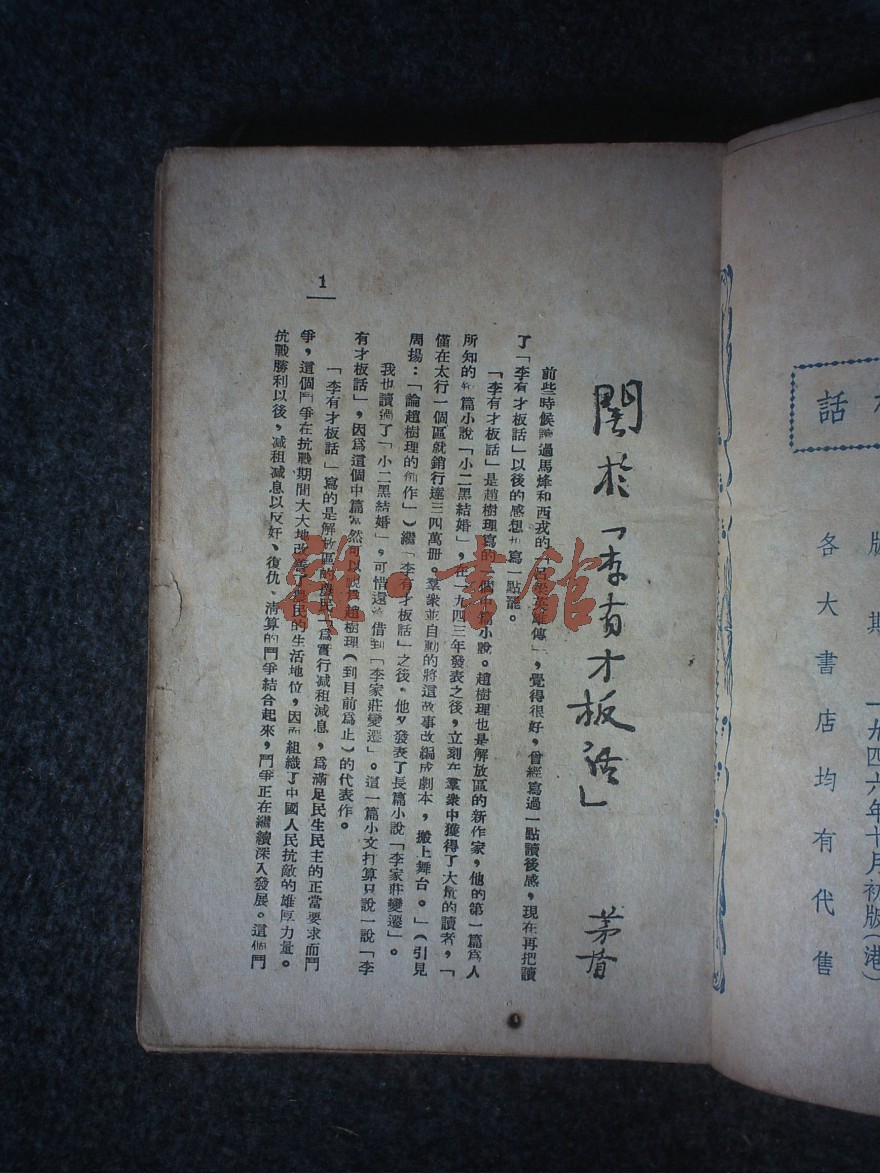 話
版 期 一九四六年十月初版(港)
各大書店均有代售
關於「李有才板話」
茅盾
前些時候讀過馬烽和西戎的「呂梁英雄傳」,覺得很好,曾經寫過一點讀後感,現在再把讀
了「李有才板話」以後的感想也寫一點罷。
「李有才板話」是趙樹理寫的一個中篇小說。趙樹理也是解放區的新作家,他的第一篇爲人
所知的短篇小說「小二黑結婚」,在一九四三年發表之後,立刻在羣衆中獲得了大量的讀者,「
僅在太行一個區就銷行達三四萬冊。羣衆並自動的將這故事改編成劇本,搬上舞台。」(引見
周揚:「論趙樹理的創作」)繼「李有才板話」之後,他又發表了長篇小說「李家莊變遷」。
我也讀過了「小二黑結婚」,可惜還 借到「李家莊變遷」。這一篇小文打算只說一說「李
有才板話」,因爲這個中篇 然可以說是趙樹理(到目前爲止)的代表作。
「李有才板話」寫的是解放區的農民 爲實行减租减息,爲滿足民生民主的正當要求而鬥
爭,這個鬥爭在抗戰期間大大地改善了農民的生活地位,因而組織了中國人民抗敵的雄厚力量。
抗戰勝利以後,减租减息以反奸、復仇、清算的鬥爭結合起來,鬥爭正在繼續深入發展。這個鬥
1
雜·書館